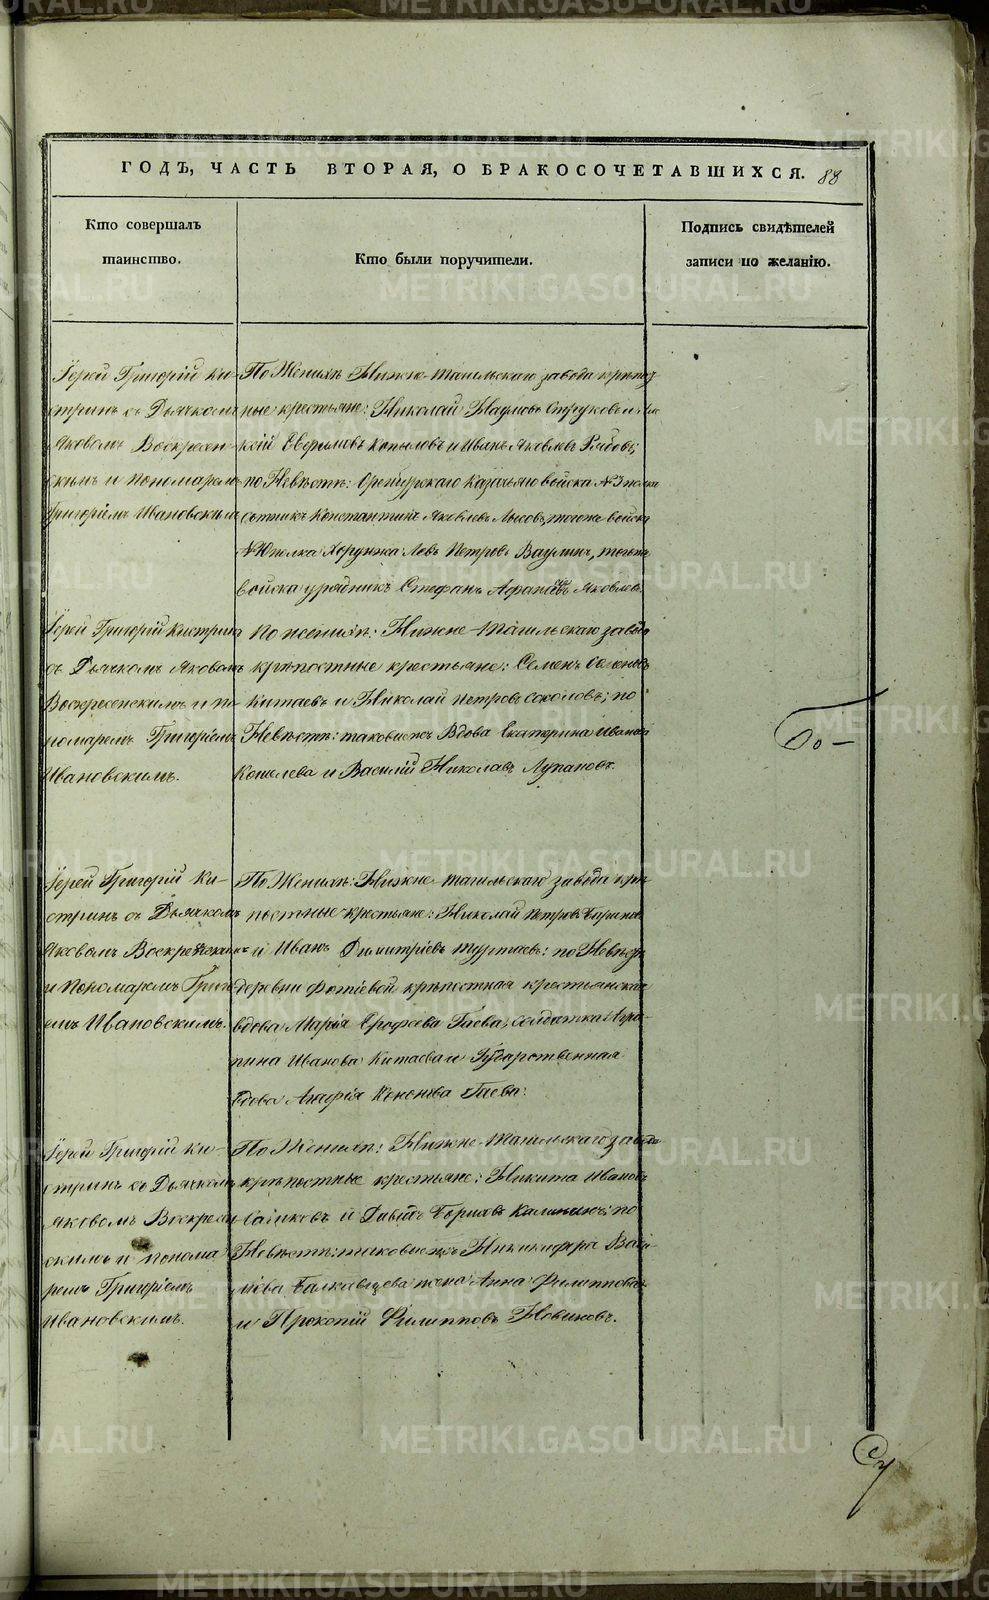 ГОДЪ, ЧАСТЬ ВТОРАЯ, О БРАКОСОЧЕТАВШИХСЯ. 88
Кто совершалъ
таинство.
Кто были поручители.
Подпись свидѣтелей
записи по желанію.
Іерей Григорій Ки-
стринъ съ Дьячкомъ
Яковомъ Воскресен-
скимъ и Пономаремъ
Григоріемъ Ивановскимъ
По Женихѣ Нижне-Тагильскаго завода крѣпост-
ные крестьяне: Николай Наумовъ Струковъ и
Евфимовъ Копыловъ и Иванъ Яковлевъ Рябовъ;
по Невѣстѣ: Оренбургскаго Казачьяго войска №3 полка
сотникъ Константинъ Яковлевъ Лысовъ, тогоже войска
№10 полка Хорунжа Левъ Петровъ Ваулинъ, тогоже
войска урядникъ Стефанъ Яковлевъ.
Іерей Григорій Кистринъ
съ Дьячкомъ Яковомъ
Воскресенскимъ и по-
номаремъ Григоріемъ
Ивановскимъ.
по женихѣ: Нижне-Тагильскаго завода
крѣпостные крестьяне: Семенъ
Китаевъ и Николай Петровъ Соколовъ; по
Невѣстѣ: таковыежъ Вдова Екатерина Иванова
Кошелева и Василій Николаевъ Лупановъ.
Бо-
Іерей Григорій Ки-
стринъ съ Дьячкомъ
Яковомъ Воскресенскимъ
и Пономаремъ Григорі-
емъ Ивановскимъ.
По Женихѣ: Нижне-Тагильскаго завода крѣ-
постные крестьяне: Николай Петровъ
и Иванъ Димитріевъ Туртаевъ: по Невѣстѣ
деревни Фотѣевой крѣпостная крестьянская
вдова Марія Ерофѣева Гаева, солдатка Агра-
пина Иванова Китаева и Государственная
вдова Агафія Гаева:
Іерей Григорій Ки-
стринъ съ Дьячкомъ
Яковомъ Воскресен-
скимъ и понома-
ремъ Григоріемъ
Ивановскимъ.
По Женихѣ: Нижне-Тагильскаго завода
крѣпостные крестьяне: Никита Ивановъ
и Давыдъ Борисовъ Калининъ; по
Невѣстѣ: таковыежъ
жена Анна Филиппова
и Прокопій Филипповъ Новиковъ.
METRIKI.GASO-URAL.RU